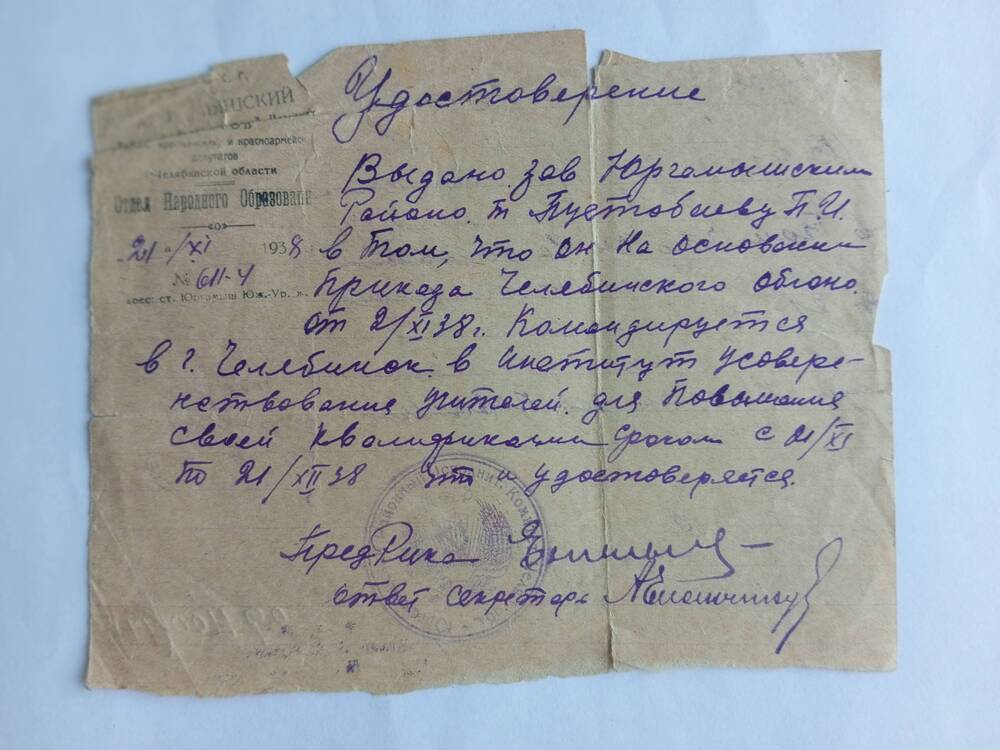 с. г.
шский
и красноармейск
депутатов
Челябинской области
Отдел Народного Образовани
„21“/XI 1938
№ 611-4
дрес: ст. Юргамыш Юж.-Ур.
Удостоверение
Выдано зав Юргамышским
Районо т. Пустоваеву П.И.
в том, что он на основании
Приказа Челябинского Облоно
от 2/XI 38 г. Командируется
в г. Челябинск в Институт усовере-
нствования учителей для повышения
своей квалификации сроком с 21/XI
по 21/XII 38 что и удостоверяется.
Пред Рика
ответ секретарь